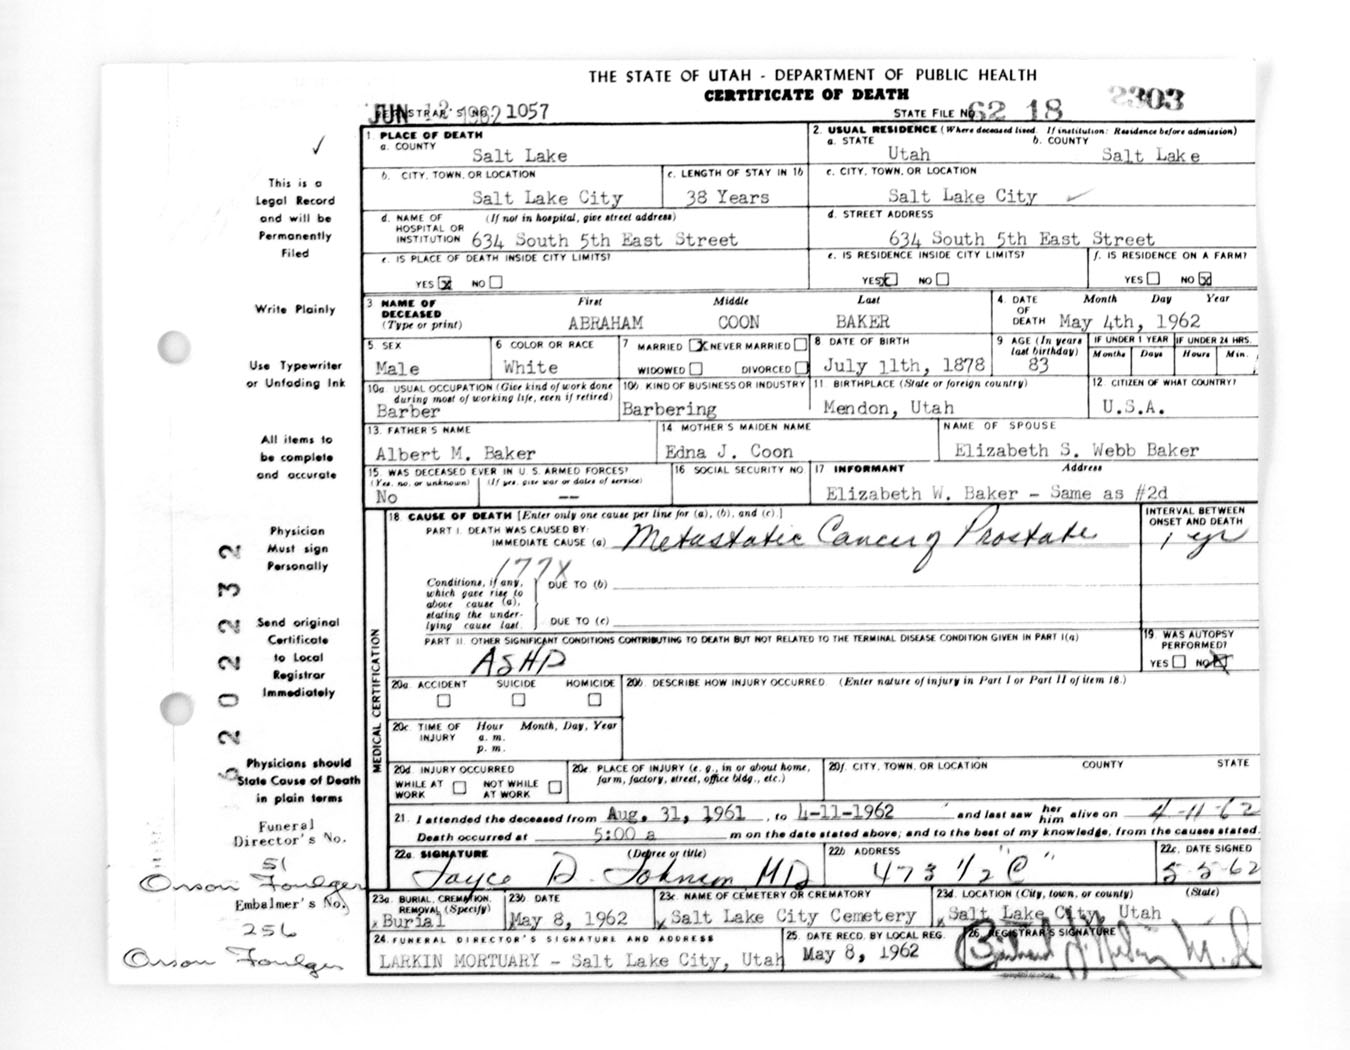 THE STATE OF UTAH - DEPARTMENT OF PUBLIC HEALTH
CERTIFICATE OF DEATH
JUN 12 1962 REGISTRAR'S NO. 1057 STATE FILE NO. 62 18 2303
1. PLACE OF DEATH 2. USUAL RESIDENCE (Where deceased lived. If institution: Residence before admission)
a. COUNTY Salt Lake a. STATE Utah b. COUNTY Salt Lake
b. CITY, TOWN, OR LOCATION Salt Lake City c. LENGTH OF STAY IN 1b 38 Years c. CITY, TOWN, OR LOCATION Salt Lake City
d. NAME OF HOSPITAL OR INSTITUTION (If not in hospital, give street address) 634 South 5th East Street d. STREET ADDRESS 634 South 5th East Street
e. IS PLACE OF DEATH INSIDE CITY LIMITS? e. IS RESIDENCE INSIDE CITY LIMITS? f. IS RESIDENCE ON A FARM?
YES X NO YES X NO YES NO X
3 NAME OF DECEASED (Type or print) First Middle Last 4. DATE OF DEATH Month Day Year
ABRAHAM COON BAKER May 4th, 1962
5. SEX Male 6 COLOR OR RACE White 7 MARRIED X NEVER MARRIED WIDOWED DIVORCED 8 DATE OF BIRTH July 11th, 1878 9 AGE (In years last birthday) 83 IF UNDER 1 YEAR Months Days IF UNDER 24 HRS. Hours Min.
10a. USUAL OCCUPATION (Give kind of work done during most of working life, even if retired) Barber 10b. KIND OF BUSINESS OR INDUSTRY Barbering 11. BIRTHPLACE (State or foreign country) Mendon, Utah 12. CITIZEN OF WHAT COUNTRY? U.S.A.
13. FATHER'S NAME Albert M. Baker 14 MOTHER'S MAIDEN NAME Edna J. Coon NAME OF SPOUSE Elizabeth S. Webb Baker
15. WAS DECEASED EVER IN U.S. ARMED FORCES? (Yes, no, or unknown) No (If yes, give war or dates of service) -- 16 SOCIAL SECURITY NO 17 INFORMANT Address Elizabeth W. Baker - Same as #2d
18. CAUSE OF DEATH [Enter only one cause per line for (a), (b), and (c).] INTERVAL BETWEEN ONSET AND DEATH
PART I. DEATH WAS CAUSED BY:
IMMEDIATE CAUSE (a) Metastatic Cancer of Prostate 1 yr
177X
Conditions, if any, which gave rise to above cause (a), stating the underlying cause last. DUE TO (b)
DUE TO (c)
PART II. OTHER SIGNIFICANT CONDITIONS CONTRIBUTING TO DEATH BUT NOT RELATED TO THE TERMINAL DISEASE CONDITION GIVEN IN PART I(a) 19 WAS AUTOPSY PERFORMED?
ASHD YES NO X
MEDICAL CERTIFICATION
20a. ACCIDENT SUICIDE HOMICIDE 20b. DESCRIBE HOW INJURY OCCURRED. (Enter nature of injury in Part I or Part II of item 18.)
20c. TIME OF INJURY Hour a. m. p. m. Month, Day, Year
20d. INJURY OCCURRED WHILE AT WORK NOT WHILE AT WORK 20e. PLACE OF INJURY (e. g., in or about home, farm, factory, street, office bldg., etc.) 20f. CITY, TOWN, OR LOCATION COUNTY STATE
21. I attended the deceased from Aug. 31, 1961, to 4-11-1962 and last saw her him alive on 4-11-62
Death occurred at 5:00 a m on the date stated above; and to the best of my knowledge, from the causes stated.
22a. SIGNATURE (Degree or title) Joyce D. Johnson MD 22b ADDRESS 473 1/2 "C" 22c. DATE SIGNED 5-5-62
23a. BURIAL, CREMATION, REMOVAL (Specify) Burial 23b. DATE May 8, 1962 23c. NAME OF CEMETERY OR CREMATORY Salt Lake City Cemetery 23d. LOCATION (City, town, or county) (State) Salt Lake City, Utah
24. FUNERAL DIRECTOR'S SIGNATURE AND ADDRESS LARKIN MORTUARY - Salt Lake City, Utah 25. DATE RECD. BY LOCAL REG. May 8, 1962 26. REGISTRAR'S SIGNATURE
This is a
Legal Record
and will be
Permanently
Filed
Write Plainly
Use Typewriter
or Unfading Ink
All items to
be complete
and accurate
Physician
Must sign
Personally
Send original
Certificate
to Local
Registrar
Immediately
Physicians should
State Cause of Death
in plain terms
Funeral
Director's No.
51
Orson Foulger
Embalmer's No.
256
Orson Foulger
2022232